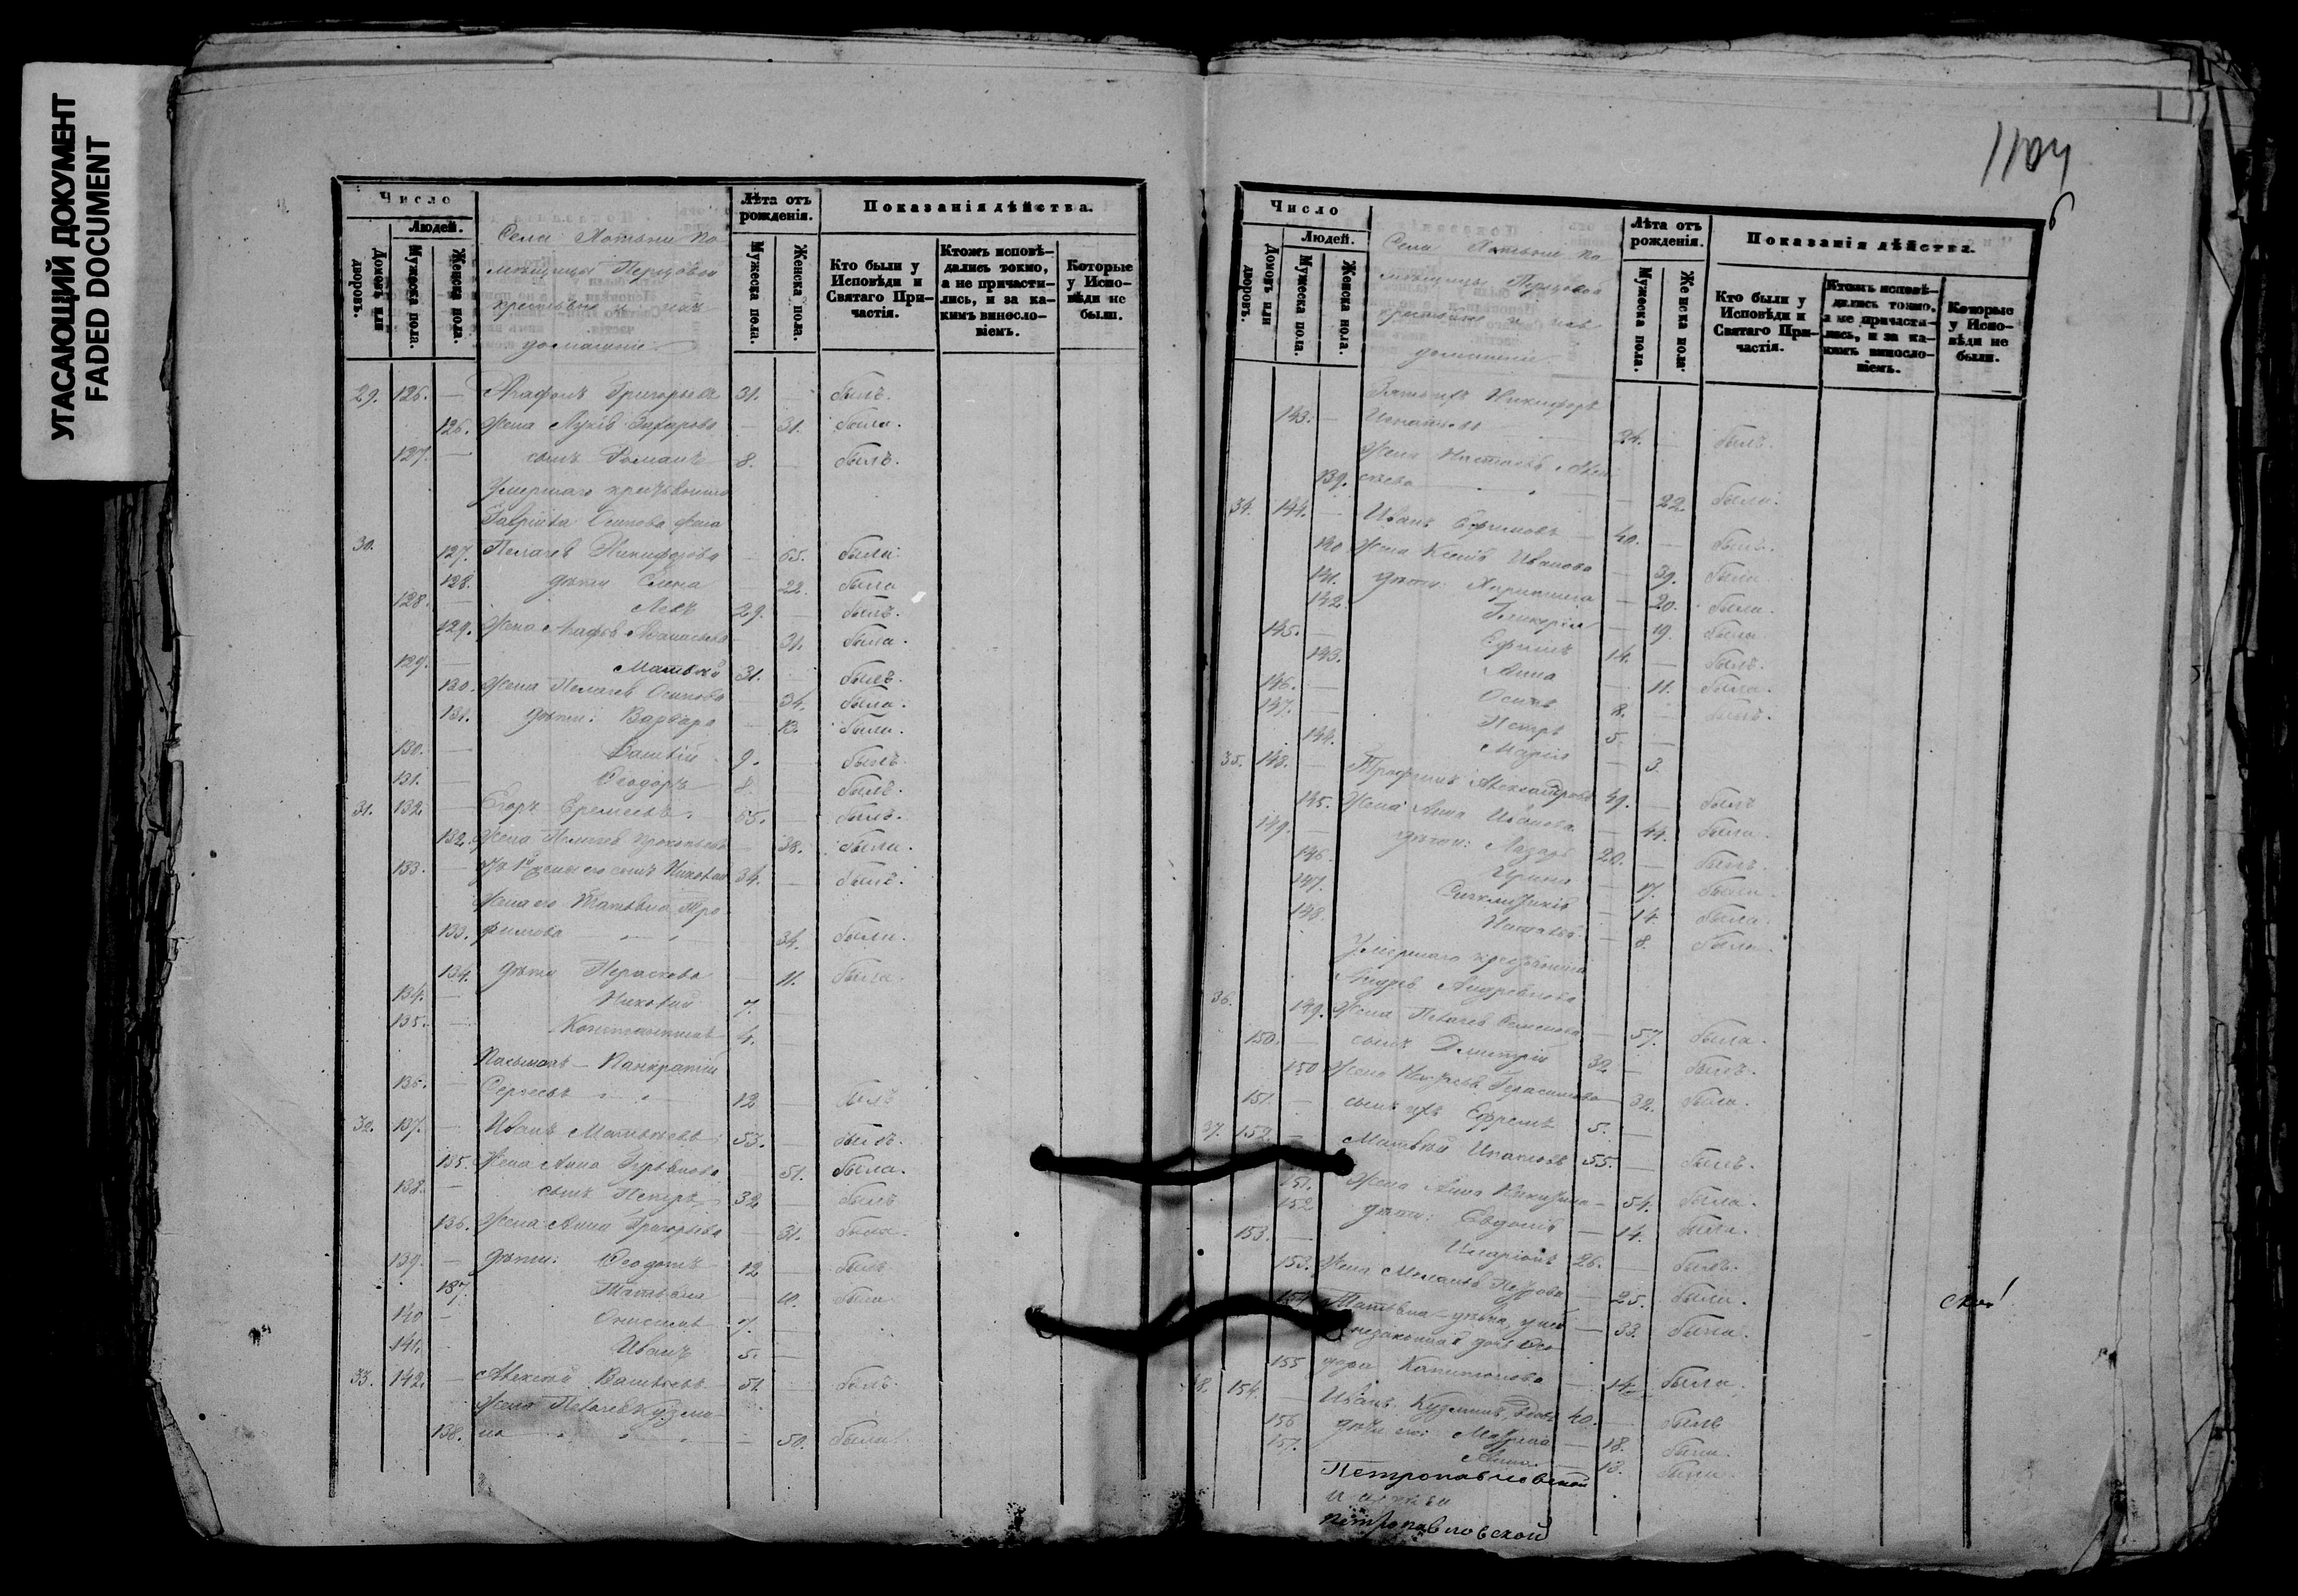 УГАСАЮЩИЙ ДОКУМЕНТ
FADED DOCUMENT
Число
Людей.
Домовъ или дворовъ.
Мужеска пола.
Женска пола.
Села Хотыни по-
мѣщицы Перцовой
крестьяне и ихъ
домашніе
Лѣта отъ рожденія.
Мужеска пола.
Женска пола.
Показанія дѣйства.
Кто были у Исповѣди и Святаго При-частія.
Ктожъ исповѣ-дались токмо, а не причасти-лись, и за ка-кимъ винослo-віемъ.
Которые у Испо-вѣди не были.
29. 126. — Агафонъ Григорьевъ 31. — былъ.
126. Жена Лукія Захарова — 31. была.
127. — сынъ Романъ 8. — былъ.
Умершаго крестьянина
Гавріила Осипова жена
30. 127. Пелагея Никифорова — 65. была.
128. дѣти Елена — 22. была
128. — Левъ 29. — былъ.
129. Жена Агафья Аѳанасьева — 31. была.
129. — Матвѣй 31. — былъ.
130. Жена Пелагея Осипова — 34. была.
131. дѣти: Варвара — 13. была.
130. — Василій 9. — былъ.
131. — Ѳеодоръ 8. — былъ.
31. 132. — Егоръ Еремеевъ 65. — былъ.
132. Жена Пелагея Прокопьева — 38. была.
133. — 1й жены его сынъ Николай 34. — былъ.
Жена его Татьяна Тро
133. фимова — 34. была.
134. дѣти Параскева — 11. была.
134. — Николай 7. —
135. — Константинъ 4. —
Панкратій
136. — Сергѣевъ 12 — былъ
32. 137. — Иванъ Матвѣевъ 53. — былъ.
135. Жена Анна Гурьянова — 51. была.
138. — сынъ Петръ 32 — былъ
136. Жена Анна Григорьева — 31. была.
139. — дѣти: Ѳеодотъ 12 — былъ
137. Татьяна — 10. была
140 — Онисимъ 7. —
141. Иванъ 5. —
33. 142. — Алексѣй Васильевъ 51. — былъ.
Жена Пелагея Кузми-
138. на — 50. была.
1104
6
Число
Людей.
Домовъ или дворовъ.
Мужеска пола.
Женска пола.
Села Хотыни по-
мѣщицы Перцовой
крестьяне и ихъ
домашніе
Лѣта отъ рожденія.
Мужеска пола.
Женска пола.
Показанія дѣйства.
Кто были у Исповѣди и Святаго При-частія.
Ктожъ исповѣ-дались токмо, а не причасти-лись, и за ка-кимъ винослo-віемъ.
Которые у Испо-вѣди не были.
Зятъ ихъ Никифоръ
143. — Игнатьевъ 24. — былъ.
Жена Настасья Алек
139. сѣева — 22. была.
34. 144. — Иванъ Ефимовъ 40. — былъ.
140 Жена Ксенія Иванова — 39. была
141. дѣти: Харитина — 20. была.
142. Гликерія — 19. была
145. — Ефимъ 14. — былъ.
143. Анна — 11. была.
146. — Осипъ 8. — былъ.
147. — Петръ 5. —
144. Марія — 3.
35. 148. — Трофимъ Александровъ 49. — былъ
145. Жена Анна Иванова — 44. была.
149. — дѣти: Лазарь 20. — былъ.
146. Ирина — 17. была.
147. — 14. была.
148. Наталья — 8. была.
Умершаго крестьянина
36. 149. Жена Пелагея Семенова — 57. была.
150. — сынъ Дмитрій 32. — былъ.
150 Жена Герасимова — 32. была.
151. — сынъ ихъ Ефремъ 5. —
37. 152. — Матвѣй Ипатовъ 55. — былъ.
151. Жена Анна — 54. была.
152 дѣти: Евдокія — 14. была.
153. — Иларіонъ 26. — былъ.
153. Жена Меланья Петрова — 25. была.
154 Татьяна дѣвка, у ней — 33. была.
незаконная дочь Ѳео
155 дора Капитонова — 14. была.
38. 154. — Иванъ Кузминъ, вдовъ 40. — былъ
156 дѣти его: Матрена — 18. была.
157. Анна — 13. была.
Петропавловской
Петропавловской